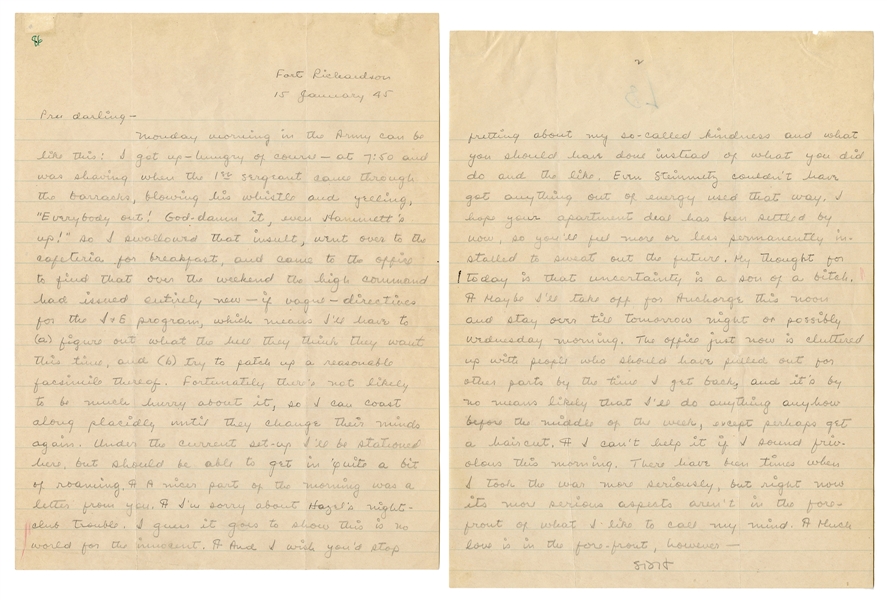 86
Fort Richardson
15 January 45
Pru darling—
Monday morning in the Army can be
like this: I got up—hungry of course—at 7:50 and
was shaving when the 1st Sergeant came through
the barracks, blowing his whistle and yelling,
"Everybody out! God-damn it, even Hammett's
up!" so I swallowed that insult, went over to the
cafeteria for breakfast, and came to the office
to find that over the weekend the high command
had issued entirely new—if vague—directives
for the I&E program, which means I'll have to
(a) figure out what the hell they think they want
this time, and (b) try to patch up a reasonable
facsimile thereof. Fortunately there's not likely
to be much hurry about it, so I can coast
along placidly until they change their minds
again. Under the current set-up I'll be stationed
here, but should be able to get in quite a bit
of roaming. ¶ A nicer part of the morning was a
letter from you. ¶ I'm sorry about Hazel's night-
club trouble. I guess it goes to show this is no
world for the innocent. ¶ And I wish you'd stop
2
fretting about my so-called kindness and what
you should have done instead of what you did
do and the like. Even Steinmetz couldn't have
got anything out of energy used that way. I
hope your apartment deal has been settled by
now, so you'll feel more or less permanently in-
stalled to sweat out the future. My thought for
today is that uncertainty is a son of a bitch.
¶ Maybe I'll take off for Anchorage this noon
and stay over till tomorrow night or possibly
Wednesday morning. The office just now is cluttered
up with people who should have pulled out for
other parts by the time I get back, and it's by
no means likely that I'll do anything anyhow
before the middle of the week, except perhaps get
a haircut. ¶ I can't help it if I sound friv-
olous this morning. There have been times when
I took the war more seriously, but right now
its more serious aspects aren't in the fore-
front of what I like to call my mind. ¶ Much
love is in the fore-front, however—